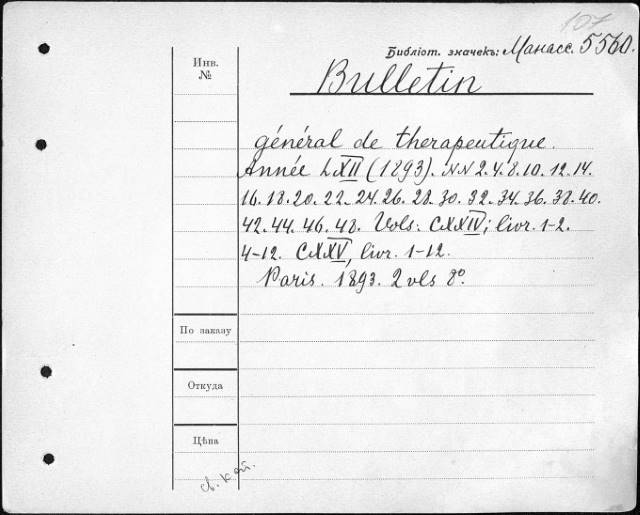 107
Библіот. значекъ: Манасс. 5560.
Инв.
№
Bulletin
général de therapeutique.
Année LXII (1893). NN 2. 4. 8. 10. 12. 14.
16. 18. 20. 22. 24. 26. 28. 30. 32. 34. 36. 38. 40.
42. 44. 46. 48. Vols: CXXIV; livr. 1-2.
4-12. CXXV, livr. 1-12.
Paris. 1893. 2 vls 8º.
По заказу
Откуда
Цѣна
св. кат.